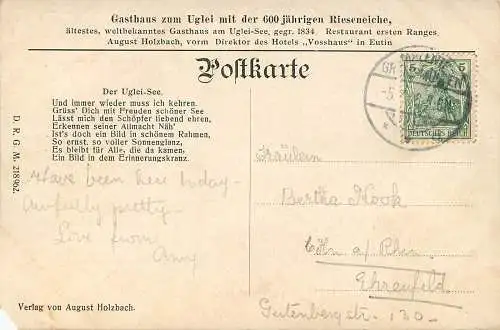 Gasthaus zum Uglei mit der 600jährigen Rieseneiche,
ältestes, weltbekanntes Gasthaus am Uglei-See, gegr. 1834. Restaurant ersten Ranges
August Holzbach, vorm Direktor des Hotels „Vosshaus" in Eutin
Postkarte
Der Uglei-See.
Und immer wieder muss ich kehren.
Grüss' Dich mit Freuden schöner See
Lässt mich den Schöpfer liebend ehren,
Erkennen seiner Allmacht Näh'
Ist's doch ein Bild in schönem Rahmen,
So ernst, so voller Sonnenglanz,
Es bleibt für Alle, die da kamen,
Ein Bild in dem Erinnerungskranz.
D. R. G. M. 218962.
Have been here today-
Awfully pretty-
Love from
Amy
Verlag von August Holzbach.
5
DEUTSCHES REICH
Fräulein
Bertha Hook
Cöln a/Rhein
Ehrenfeld
Gutenbergstr. 130-